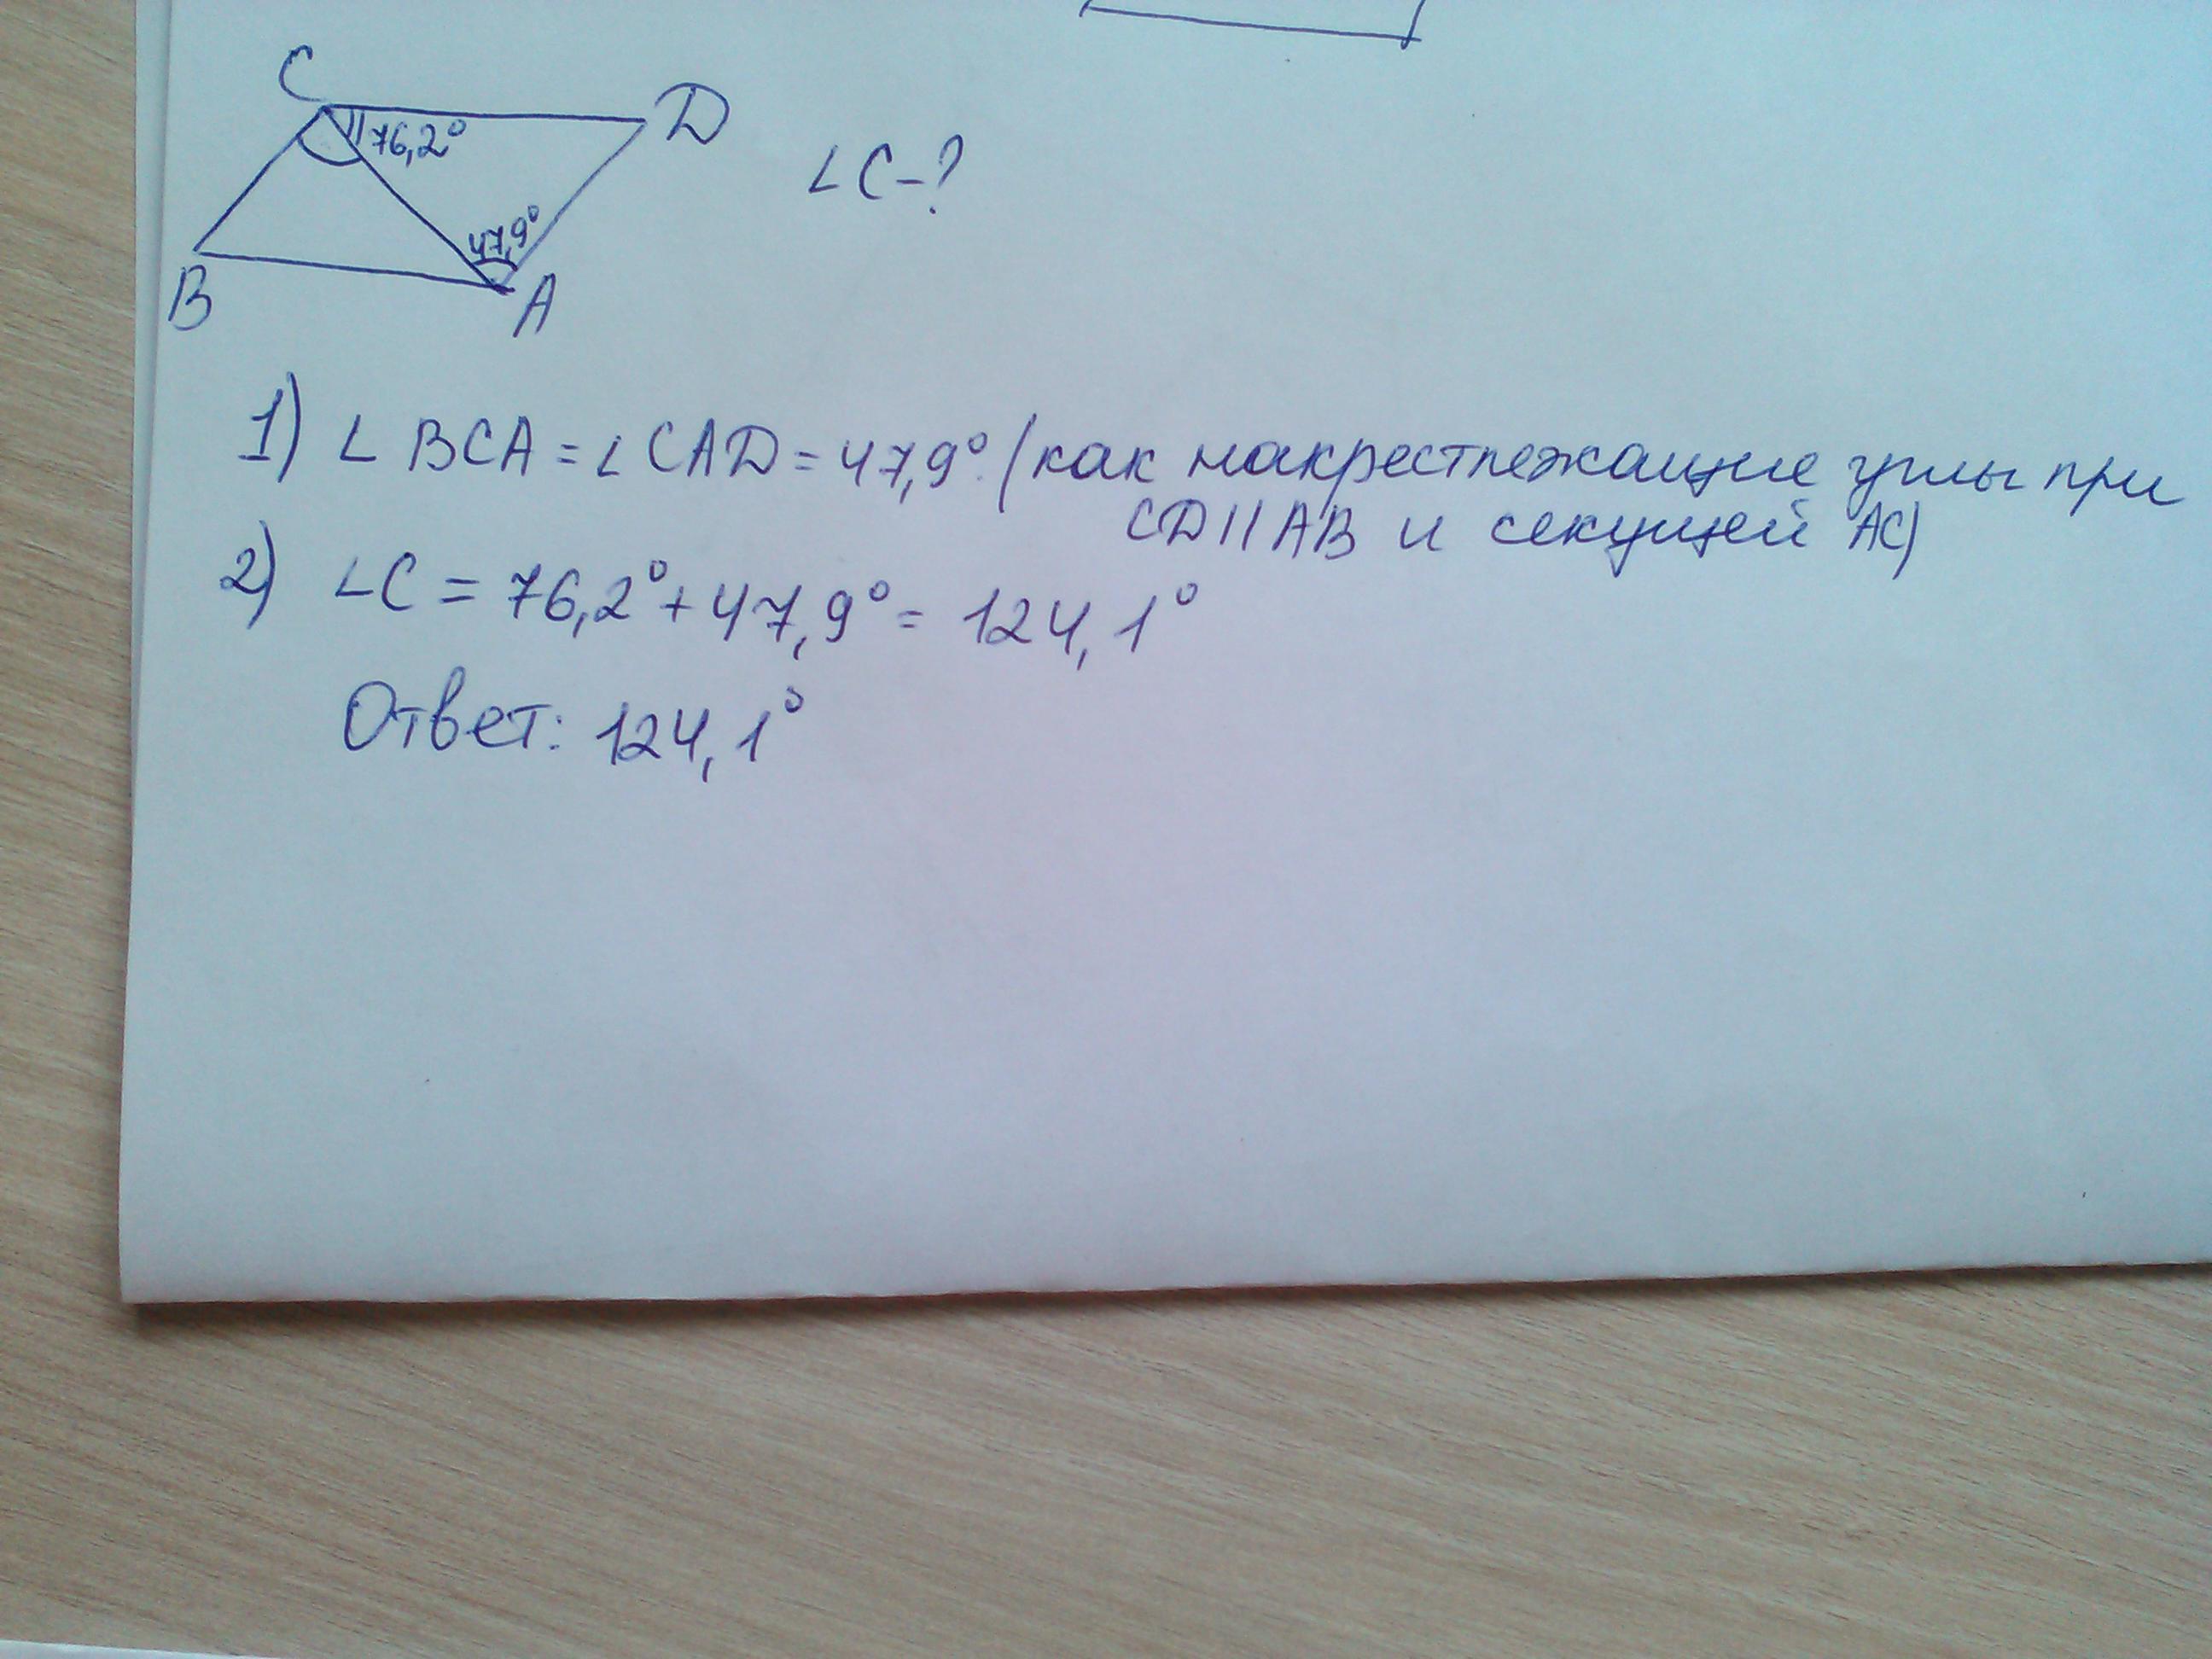 C
D
76,2°
∠C-?
47,9°
B
A
1) ∠BCA = ∠CAD = 47,9° (как накрестлежащие углы при
CD || AB и секущей AC)
2) ∠C = 76,2° + 47,9° = 124,1°
Ответ: 124,1°